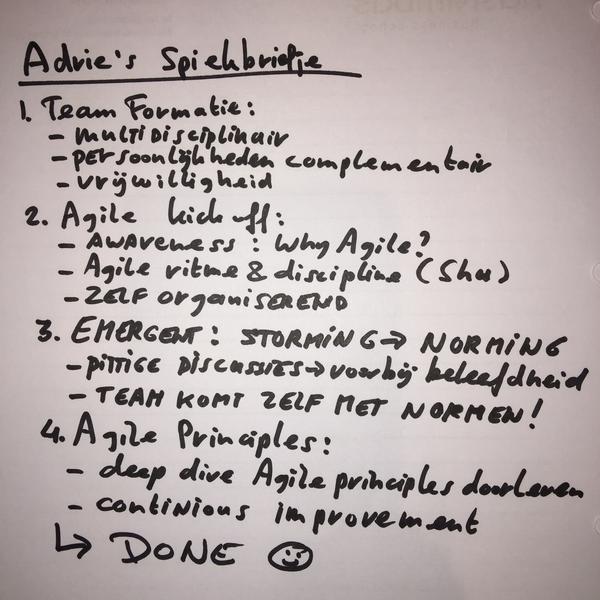 Advie's Spiekbriefje
1. Team Formatie:
- MULTIDISCIPLINAIR
- PERSOONLIJKHEDEN complementair
- VRIJWILLIGHEID
2. Agile kick off:
- AWARENESS: Why Agile?
- Agile ritme & discipline (Shu)
- ZELF ORGANISEREND
3. EMERGENT: STORMING → NORMING
- PITTIGE DISCUSSIES → voorbij beleefdheid
- TEAM KOMT ZELF MET NORMEN!
4. Agile Principles:
- deep dive Agile principles doorleven
- continious improvement
↳ DONE